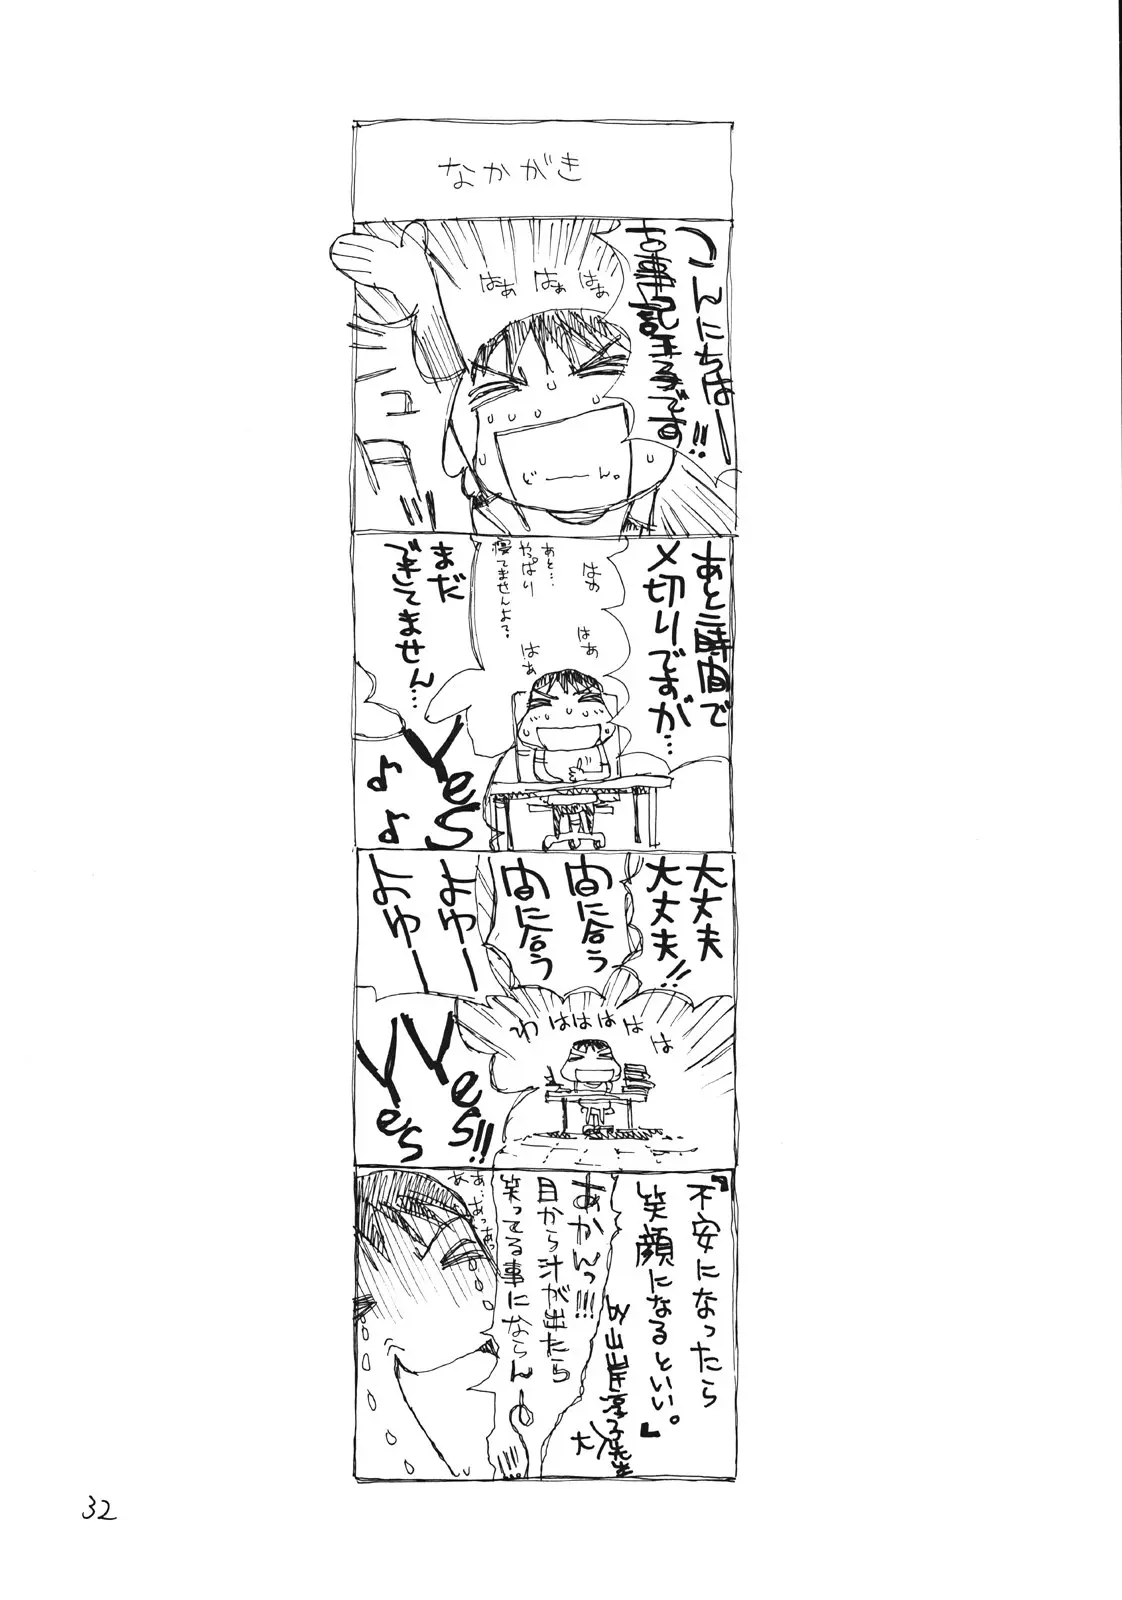 なかがき
こんにちはー!!
です
はぁ
はぁ
はぁ
じーん。
あと三時間で
〆切りですが…
はぁ
はぁ
はぁ
あと…
やっぱり
寝てませんよ?
まだ
できてません…
Yes
♪
♪
大丈夫
大丈夫!!
間に合う
間に合う
よゆー
よゆー
わはははは
は
Yes!!
Yes
『不安になったら
笑顔になるといい。』
by山岸涼子先生
あかんっ!!!
目から汁が出たら
笑ってる事にならんー
32